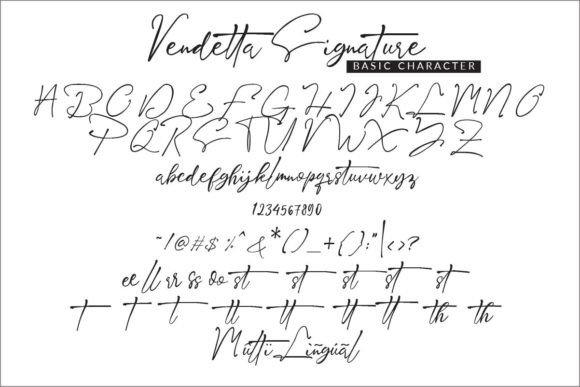 Vendetta Signature
BASIC CHARACTER
A B C D E F G H I J K L M N O
P Q R S T U V W X Y Z
abcdefghijklmnopqrstuvwxyz
1234567890
~!@#$%^&*()_+{}:"|<>?
ee ll rr ss oo st st st st st
t t t tt tt tt tt th th
Multi Lingúãl